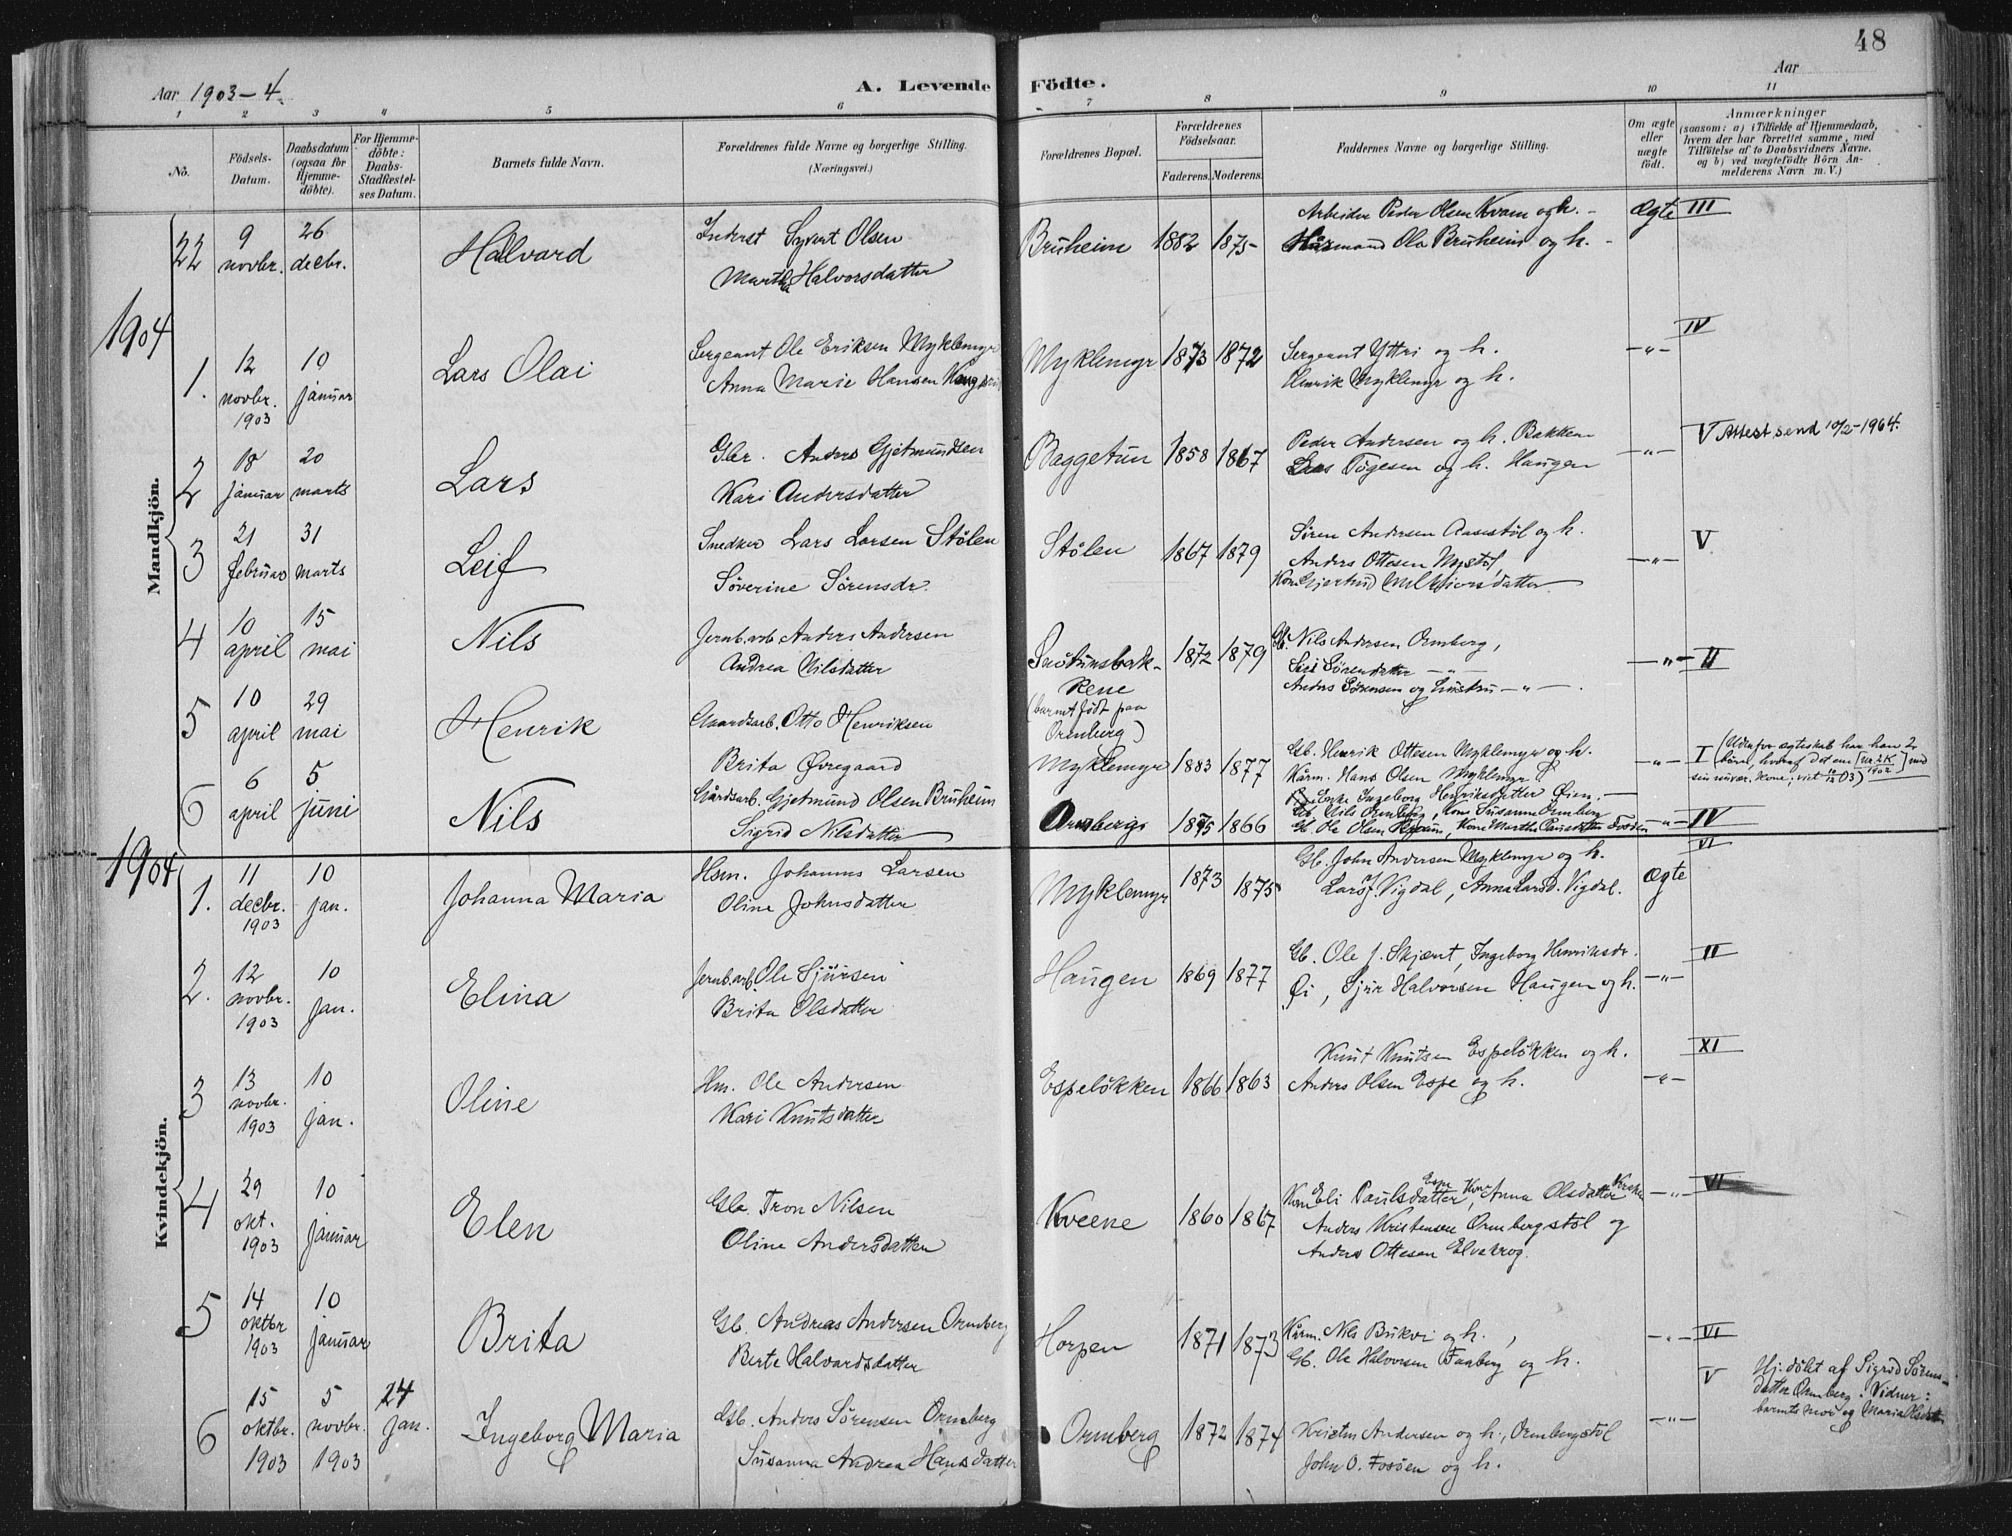 48
Aar 1903-4.
A. Levende Födte.
Aar
1 2 3 4 5 6 7 8 9 10 11
No.
Födsels-Datum.
Daabsdatum (ogsaa for Hjemme-döbte).
For Hjemme-döbte: Daabs-Stadfæstel-ses Datum.
Barnets fulde Navn.
Forældrenes fulde Navne og borgerlige Stilling. (Næringsvei.)
Forældrenes Bopæl.
Forældrenes Födselsaar.
Faderens. Moderens.
Faddernes Navne og borgerlige Stilling.
Om ægte eller uægte födt.
Anmærkninger
(saasom: a) i Tilfælde af Hjemmedaab, hvem der har forrettet samme, med Tilföielse af to Daabsvidners Navne, og b) ved uægtefödte Börn An-melderens Navn m. V.)
Mandkjön.
22 9 novbr. 26 decbr. Halvard
Inderst Syvert Olsen
Martha Halvorsdatter
Bruheim 1882 1875
Arbeider Peder Olsen Kvam og h. -
Husmand Ola Bruheim og h. -
ægte III
1904
1. 12 novbr. 1903 10 januar Lars Olai
Sergeant Ole Eriksen Myklemyr
Anna Marie Hansen
Myklemyr 1873 1872
Sergeant Yttri og h.
Henrik Myklemyr og h.
-"- IV
2 18 januar 20 marts Lars
Gbr. Anders Gjetmundsen
Kari Andersdatter
Baggetun 1858 1867
Peder Andersen og h. Bakken
Lars Tøgesen og h. Haugen
-"- V Attest send 10/2-1964.
3 21 februar 31 marts Leif
Snedker Lars Larsen Stølen
Søverine Sørensdr.
Stølen 1867 1879
Søren Andersen Aasestøl og h.
Anders Ottesen Nystøl
Kone Gjertrud Melkiorsdatter
-"- V
4 10 april 15 mai Nils
Jernb.arb. Anders Andersen
Andrea Nilsdatter
Snøtunsbak-
kene
(barnet født paa
Ormberg)
1872 1879
Gb. Nils Andersen Ormberg,
Siri Sørensdatter -"-
Anders Sørensen og hustru -"-
-"- II
5 10 april 29 mai Henrik
Gaardsarb. Otto Henriksen
Brita Øvregaard
Myklemyr 1883 1877
Gb. Henrik Ottesen Myklemyr og h.
Kårm. Hans Olsen Myklemyr
Enke Ingeborg Henriksdatter Øien.
-"- I (Udenfor ægteskab har han 2
børn, hvoraf det ene [Nr. 2 K 1902] med
sin nuvær. kone, viet
6 6 april 5 juni Nils
Gårdsarb. Gjetmund Olsen Bruheim
Sigrid Nilsdatter
Ormberg 1875 1866
Gb. Nils Ormberg, Kone Susanne Ormberg
Gb. Ole Olsen Kvam, Kone Marthe Paulsdatter Fossen
-"- IV
Kvindekjön.
1904
1. 11 decbr. 1903 10 jan. Johanna Maria
Hsm. Johannes Larsen
Oline Johnsdatter
Myklemyr 1873 1875
Gb. John Andersen Myklemyr og h.
Lars J. Vigdal, Anna Larsd. Vigdal.
ægte VI
2. 12 novbr. 1903 10 jan. Elina
Jernb.arb. Ole Sjursen
Brita Olsdatter
Haugen 1869 1877
Gb. Ole J. Skjæret, Ingeborg Henriksdr.
Øi, Sjur Halvorsen Haugen og h.
-"- II
3 13 novbr. 1903 10 jan. Oline
Hm. Ole Andersen
Kari Knutsdatter
Espeløkken 1866 1863
Knut Knutsen Espeløkken og h.
Anders Olsen Espe og h.
-"- XI
4 29 okt. 1903 10 januar Elen
Gbr. Tron Nilsen
Oline Andersdatter
Kveene 1860 1867
Kone Eli Paulsdatter Espe, Kone Anna Olsdatter
Anders Kristensen Ormbergstøl og
Anders Ottesen Elvekrog.
-"- VI
5 14 oktbr 1903 10 januar Brita
Gb. Andreas Andersen Ormberg
Berte Halvardsdatter
Horpen 1871 1873
Kårm. Nils Bukvi og h.,
Gb. Ole Halvorsen Faaberg og h.
-"- VI
6 15 oktbr. 1903 5 novbr. 1903 24 jan. Ingeborg Maria
Gb. Anders Sørensen Ormberg
Susanna Andrea Hansdatter
Ormberg 1872 1874
Kristen Andersen og h., Ormbergstøl
John O. Fossen og h.
-"- V
Hj. døbt af Sigrid Sørens-
datter Ormberg. Vidner:
barnets mor og Maria Olsdtr.